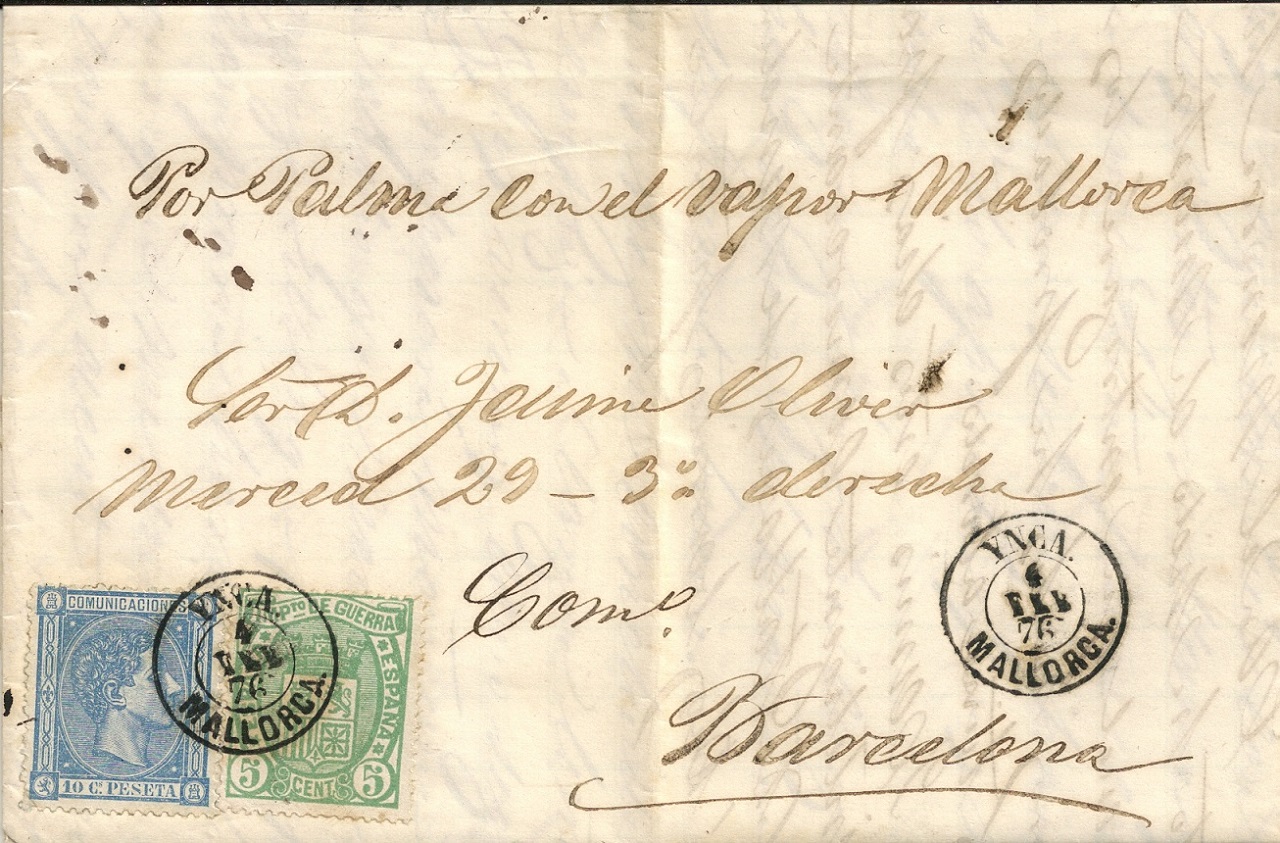 Por Palma con el vapor Mallorca
Sor D. Jaime Oliver
Merced 29 - 3º derecha
Comº
Barcelona
COMUNICACIONES
10 Cs PESETA
IMPto DE GUERRA
ESPAÑA
5 CENT. 5
YNCA.
FEB
76
MALLORCA.
YNCA.
FEB
76
MALLORCA.